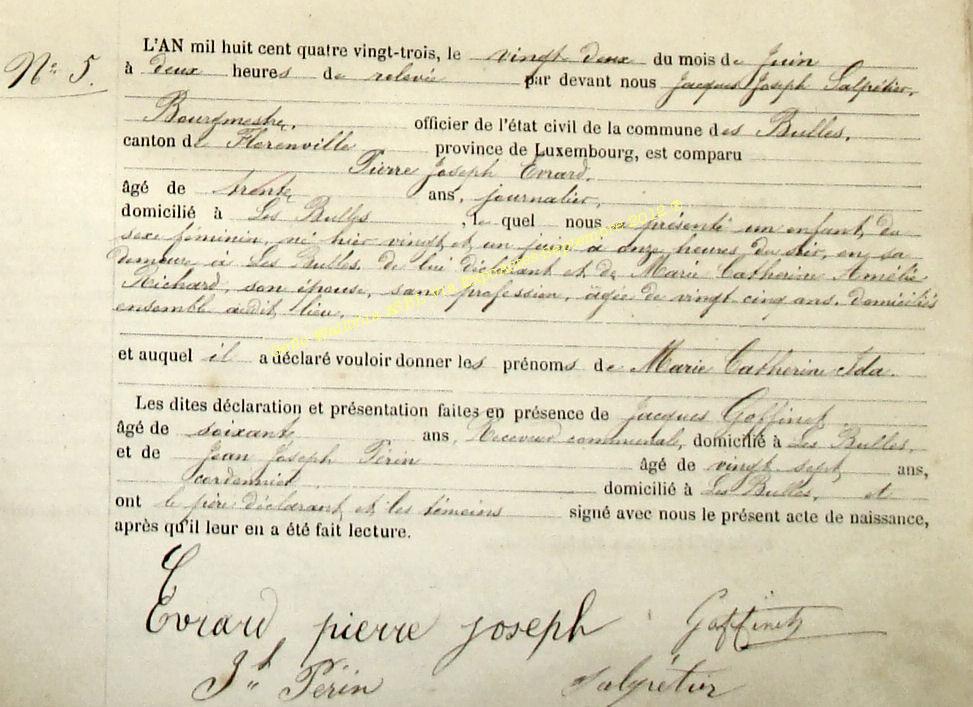 N° 5.
L'AN mil huit cent quatre vingt-trois, le vingt deux du mois de Juin
à deux heures de relevée par devant nous Jacques Joseph Salpétier,
Bourgmestre, officier de l'état civil de la commune des Bulles,
canton de Florenville province de Luxembourg, est comparu
Pierre Joseph Evrard,
âgé de trente ans, journalier,
domicilié à Les Bulles, le quel nous a présenté un enfant, du
sexe féminin, né hier vingt et un juin à onze heures du soir, en sa
demeure à Les Bulles, de lui déclarant et de Marie Catherine Amélie
Richard, son épouse, sans profession, âgée de vingt cinq ans, domiciliés
ensemble audit lieu,
et auquel il a déclaré vouloir donner les prénoms de Marie Catherine Ida.
Les dites déclaration et présentation faites en présence de Jacques Goffinet
âgé de soixante ans, Receveur communale, domicilié à Les Bulles,
et de Jean Joseph Périn âgé de vingt sept ans,
cordonnier domicilié à Les Bulles, et
ont le père déclarant et les témoins signé avec nous le présent acte de naissance,
après qu'il leur en a été fait lecture.
Evrard pierre joseph Goffinet
J. J. Périn Salpétier